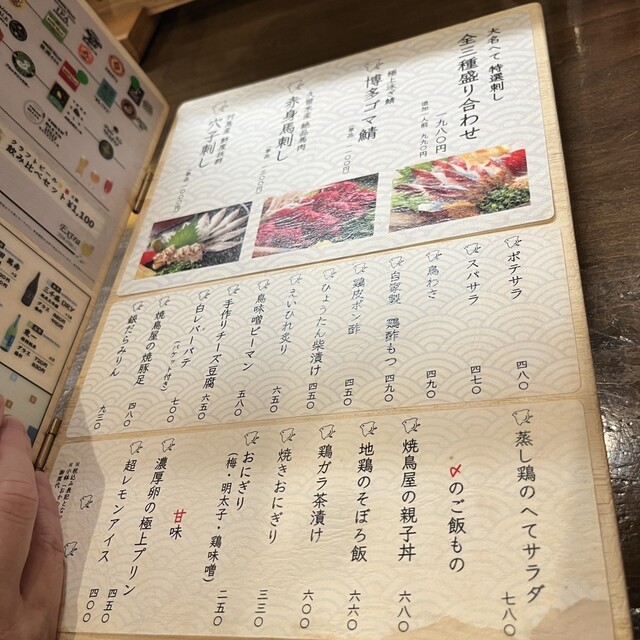 大名へて 特選刺し
全三種盛り合わせ
一、九八〇円
追加一人前 九九〇円
博多ゴマ鯖
赤身馬刺し
穴子刺し
ポテサラ 四八〇
スパサラ 四七〇
鳥わさ 四九〇
自家製 鶏酢もつ 四九〇
鶏皮ポン酢 四五〇
ひょうたん柴漬け 四五〇
えいひれ炙り 六五〇
鳥味噌ピーマン 五八〇
手作りチーズ豆腐 六五〇
白レバーパテ (バケット付き) 七〇〇
焼鳥屋の焼豚足 四八〇
銀だらみりん 九三〇
蒸し鶏のへてサラダ 七八〇
〆のご飯もの
焼鳥屋の親子丼 六八〇
地鶏のそぼろ飯 六六〇
鶏ガラ茶漬け 六〇〇
焼きおにぎり 三三〇
おにぎり
(梅・明太子・鶏味噌) 二五〇
甘味
濃厚卵の極上プリン 四五〇
超レモンアイス 四〇〇
クラフトビール
飲み比べセット ¥2,100
Extra